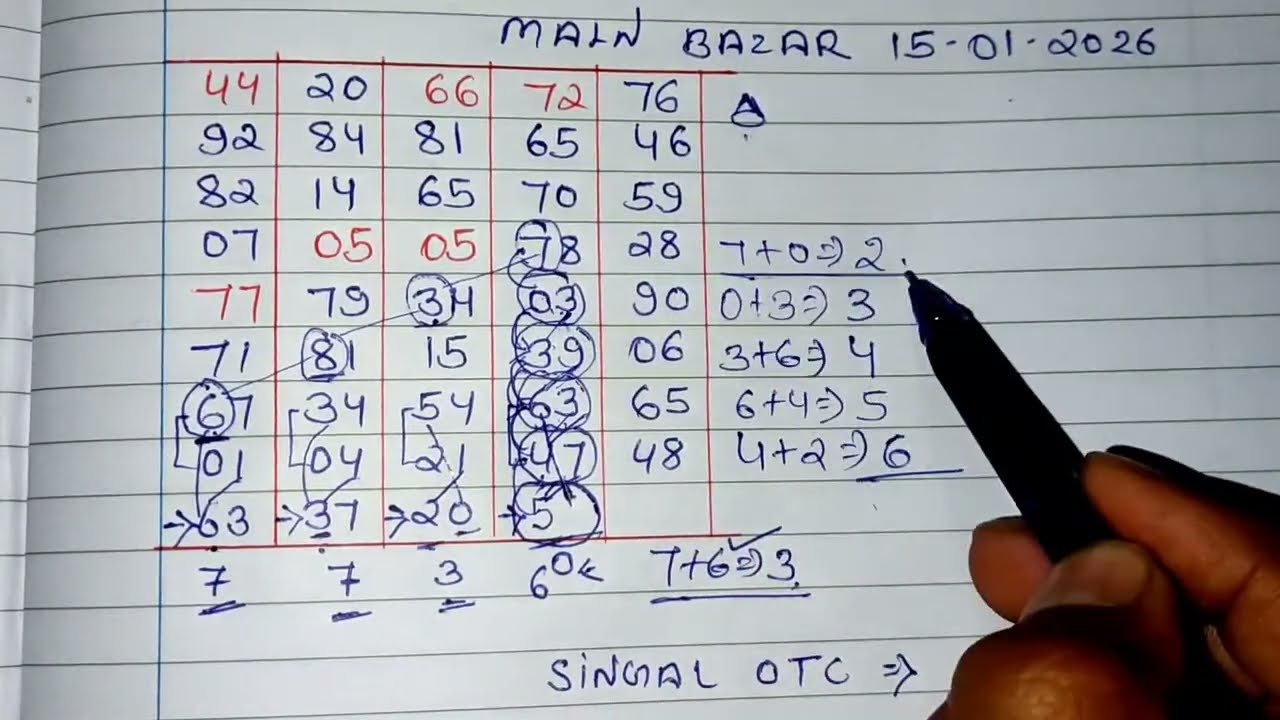 MAIN BAZAR 15-01-2026
44 20 66 72 76
92 84 81 65 46
82 14 65 70 59
07 05 05 78 28 7+0⇒2.
77 79 34 03 90 0+3⇒3
71 81 15 39 06 3+6⇒4
67 34 54 63 65 6+4⇒5
01 04 21 47 48 4+2⇒6
→63 →37 →20 →5
7 7 3 6 OK 7+6⇒3
SINGAL OTC ⇒